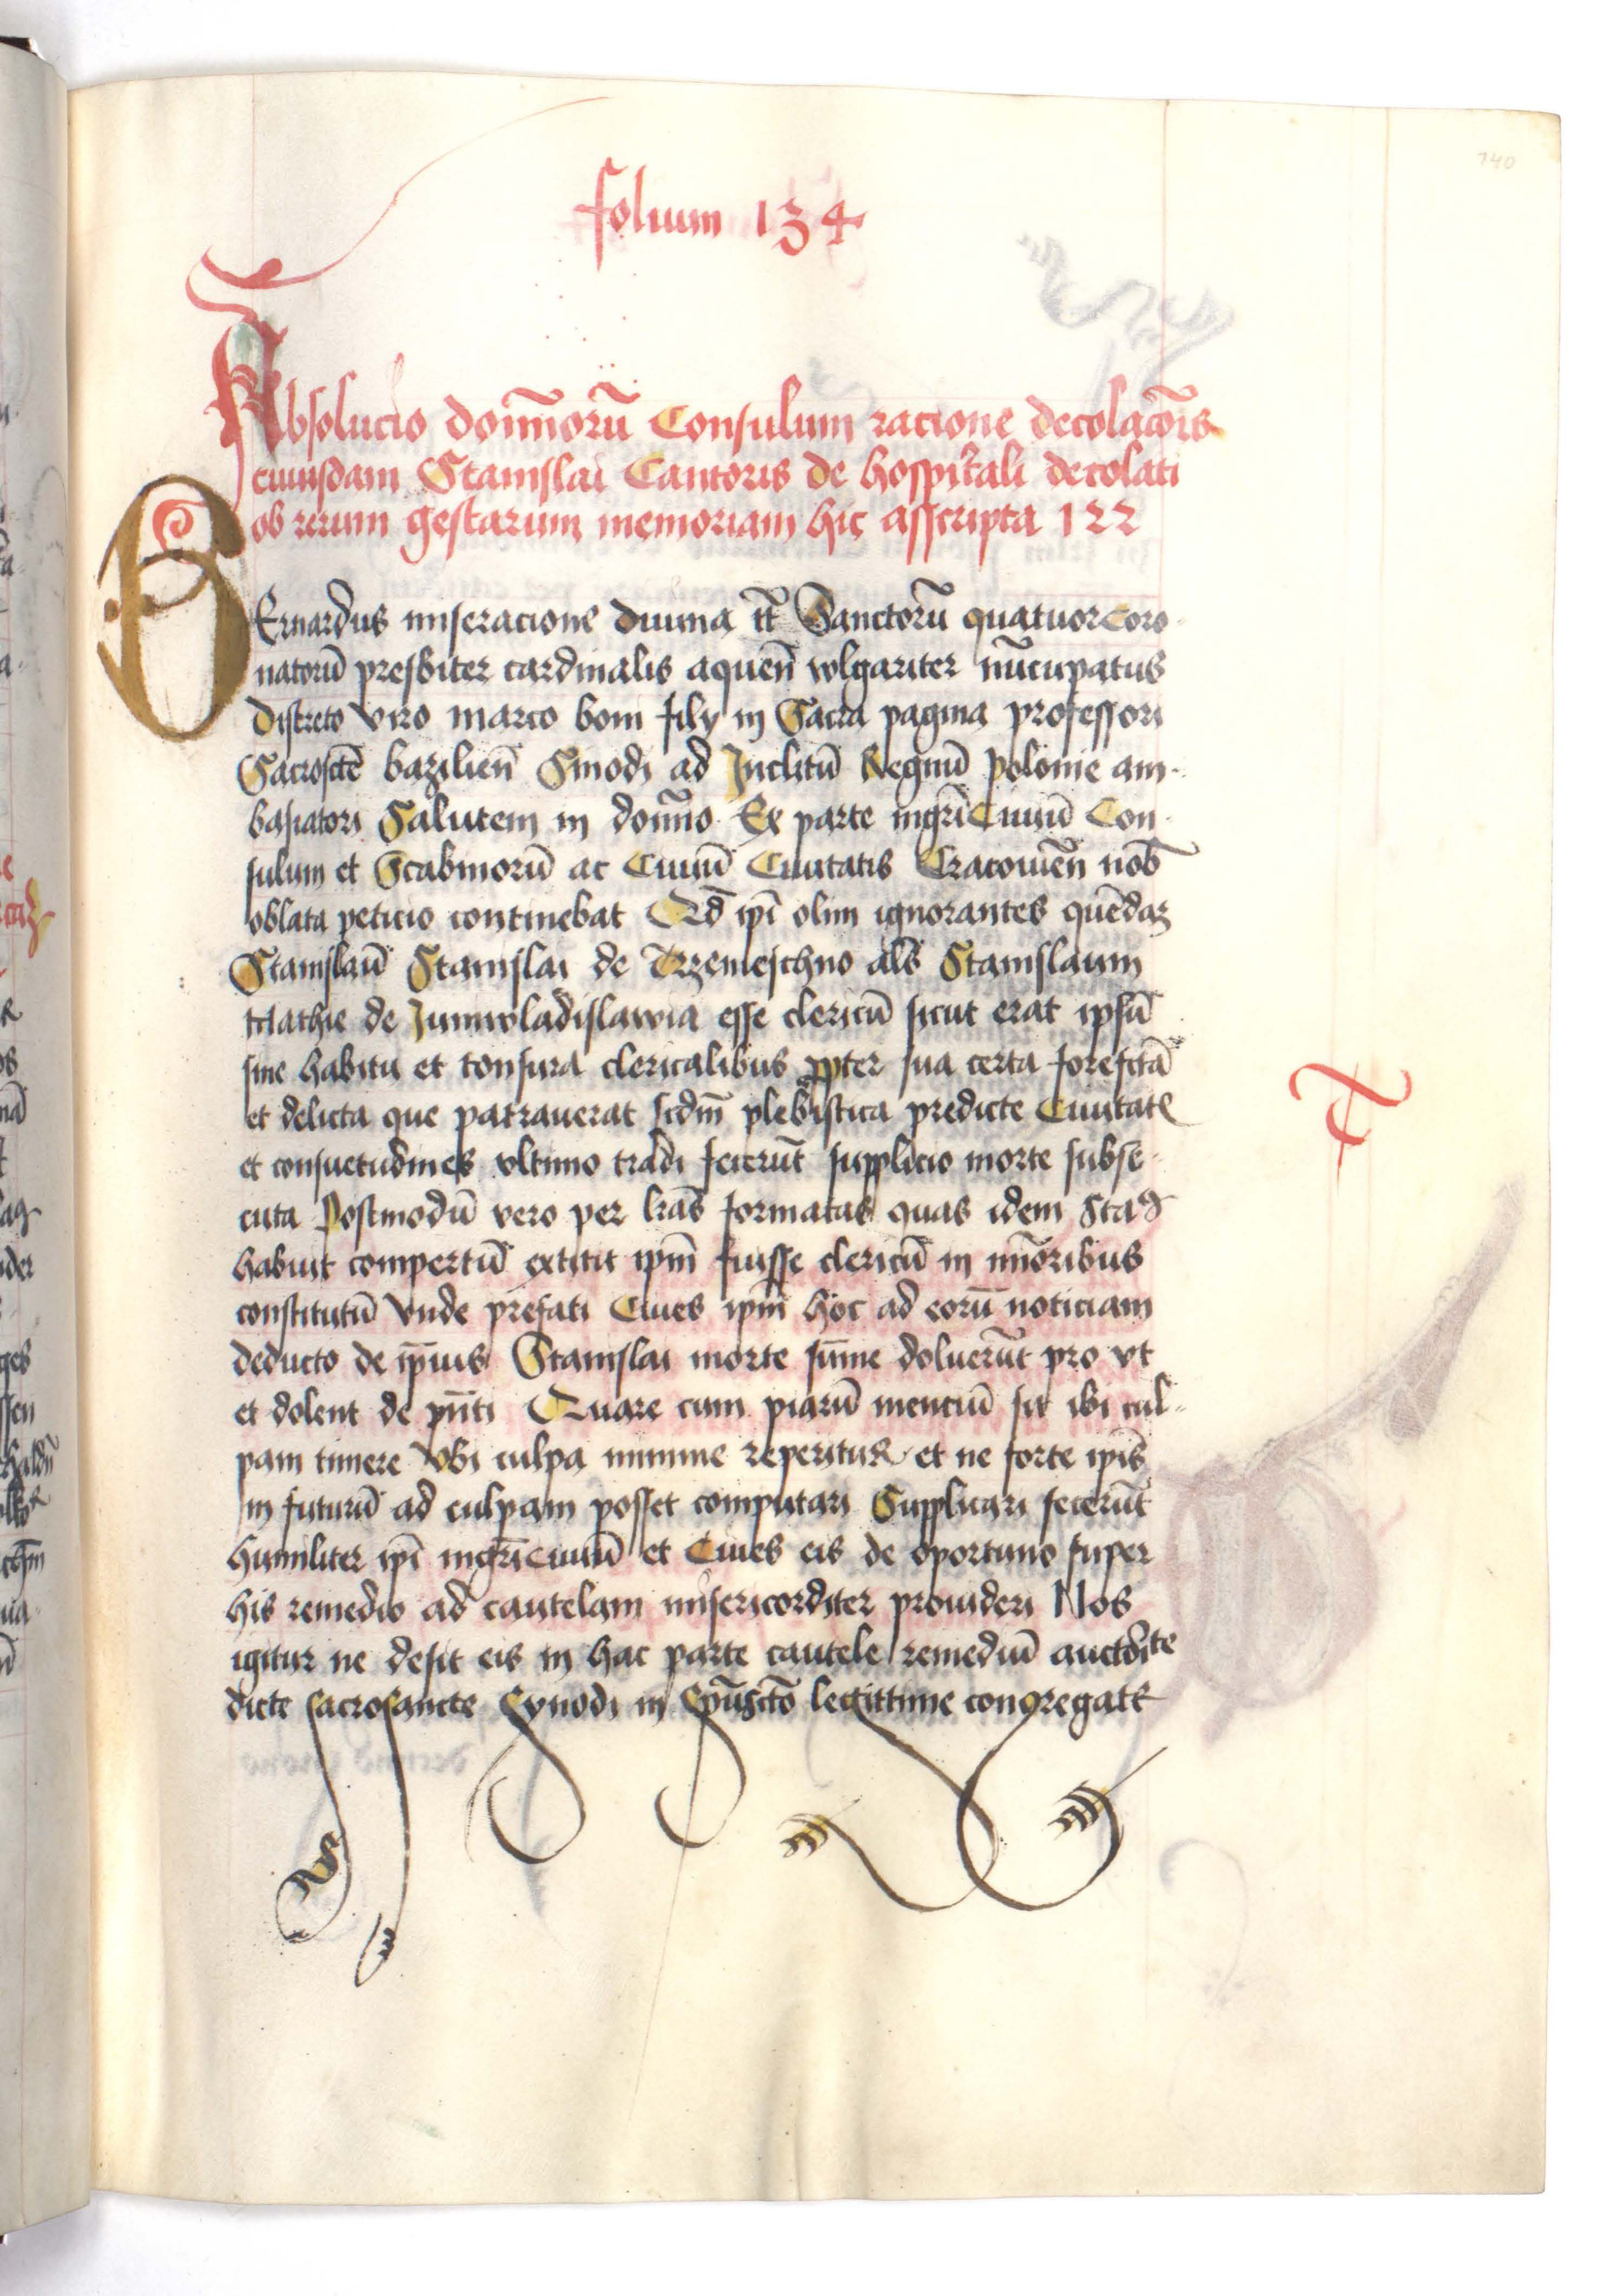 140
folium 134
Absolucio don̄norū Consulum racione decolac̄onis
cuiusdam Stanislai Cantoris de hospitali decolati
ob rerum gestarum memoriam hic asscripta 122
BErnardus miseracione diuina tt̄ Sanctorū quatuor Coro
natorū presbiter cardinalis aquen̄ wlgariter nūcupatus
discreto viro marco boni filij in Sacra pagina professori
Sacroscte bazilien̄ Sinodi ad Inclitū Regnū polonie am-
basiatori Salutem in don̄no Ex parte mgr̄i Ciuiū Con
sulum et Scabinorū ac Ciuiū Ciuitatis Cracouien̄ nob̄
oblata peticio continebat Qd̄ ip̄i olim ignorantes quēdaz
Stanislaū Stanislai de Trzemeschno al̄s Stanislaum
Mathie de Juniwladislawia esse clericū sicut erat ipsū
sine habitu et tonsura clericalibus ꝓpter sua certa forefctā
et delicta que patrauerat scdm̄ plebistica predicte Ciuitatꝭ
et consuetudines vltimo tradi fecerūt supplicio morte subse
cuta Postmodū vero per lr̄as formatas quas idem Staꝰ
habuit compertū extitit ip̄m fuisse clericū in mīoribus
constitutū Vnde prefati Ciues ip̄m hoc ad eorū noticiam
deducto de ip̄ius Stanislai morte sūme doluerūt pro vt
et dolent de pn̄ti Quare cum piarū mentiū sit ibi cul-
pam timere Vbi culpa minime reperitur et ne forte ip̄is
in futurū ad culpam posset computari Supplicari fecerūt
humiliter ip̄i mgr̄i ciuiū et Ciues eis de oportuno super
his remedio ad cautelam misericorditer prouideri Nos
igitur ne desit eis in hac parte cautele remediū auctōrite
dicte sacrosancte Synodi in Spūscto legittime congregatꝭ